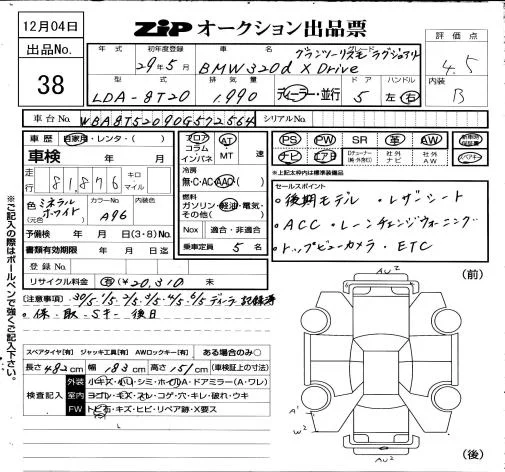 12月04日
ZiP オークション出品票
出品No.
38
年式
初年度登録
29年5月
車名
グレード
グランツーリスモ ラグジュアリー
BMW320d X Drive
評価点
4.5
型式
LDA-8T20
排気量
1,990
ディーラー・並行
ドア
5
ハンドル
左・右
内装
B
車台No.
WBA8T52090G572564
シリアルNo.
車歴
自家用・レンタ・( )
車検 年 月
走行
81,876
キロ
マイル
フロア
コラム
インパネ
AT
MT 速
冷房
無・C・AC・AAC・( )
PS PW SR 革 AW
ナビ エアB
社外ナビ
社外AW
※上記太枠内は標準装備品
色
(元色)
ミネラルホワイト
カラーNo.
A96
内装色
燃料
ガソリン・軽油・電気・
その他( )
予備検 年 月 日(3・8)No.
Nox 適合・非適合
書類有効期限 年 月 日迄
乗車定員 5 名
登録No.
リサイクル料金 有(¥20,310 )未
セールスポイント
・後期モデル ・レザーシート
・ACC ・レーンチェンジウォーニング
・トップビューカメラ ・ETC
(注意事項)
30/5 1/5 2/5 3/5 4/5 5/5 6/5 ディーラ記録簿
・保、取、Sキー 後日
スペアタイヤ[有] ジャッキ工具[有] AWロックキー[有] ある場合のみ○
長さ 482 cm 幅 183 cm 高さ 151 cm (車検証上の寸法)
検査記入
外装 小キズ・小凹・シミ・ホイールA・ドアミラー(A・ワレ)
室内 ヨゴレ・キズ・スレ・コゲ・穴・キレ・破れ・ウキ
FW トビ石・キズ・ヒビ・リペア跡・X要ス
AU2
(前)
A1
W2
AU2
(後)
※ご記入の際はボールペンで強くご記入下さい。